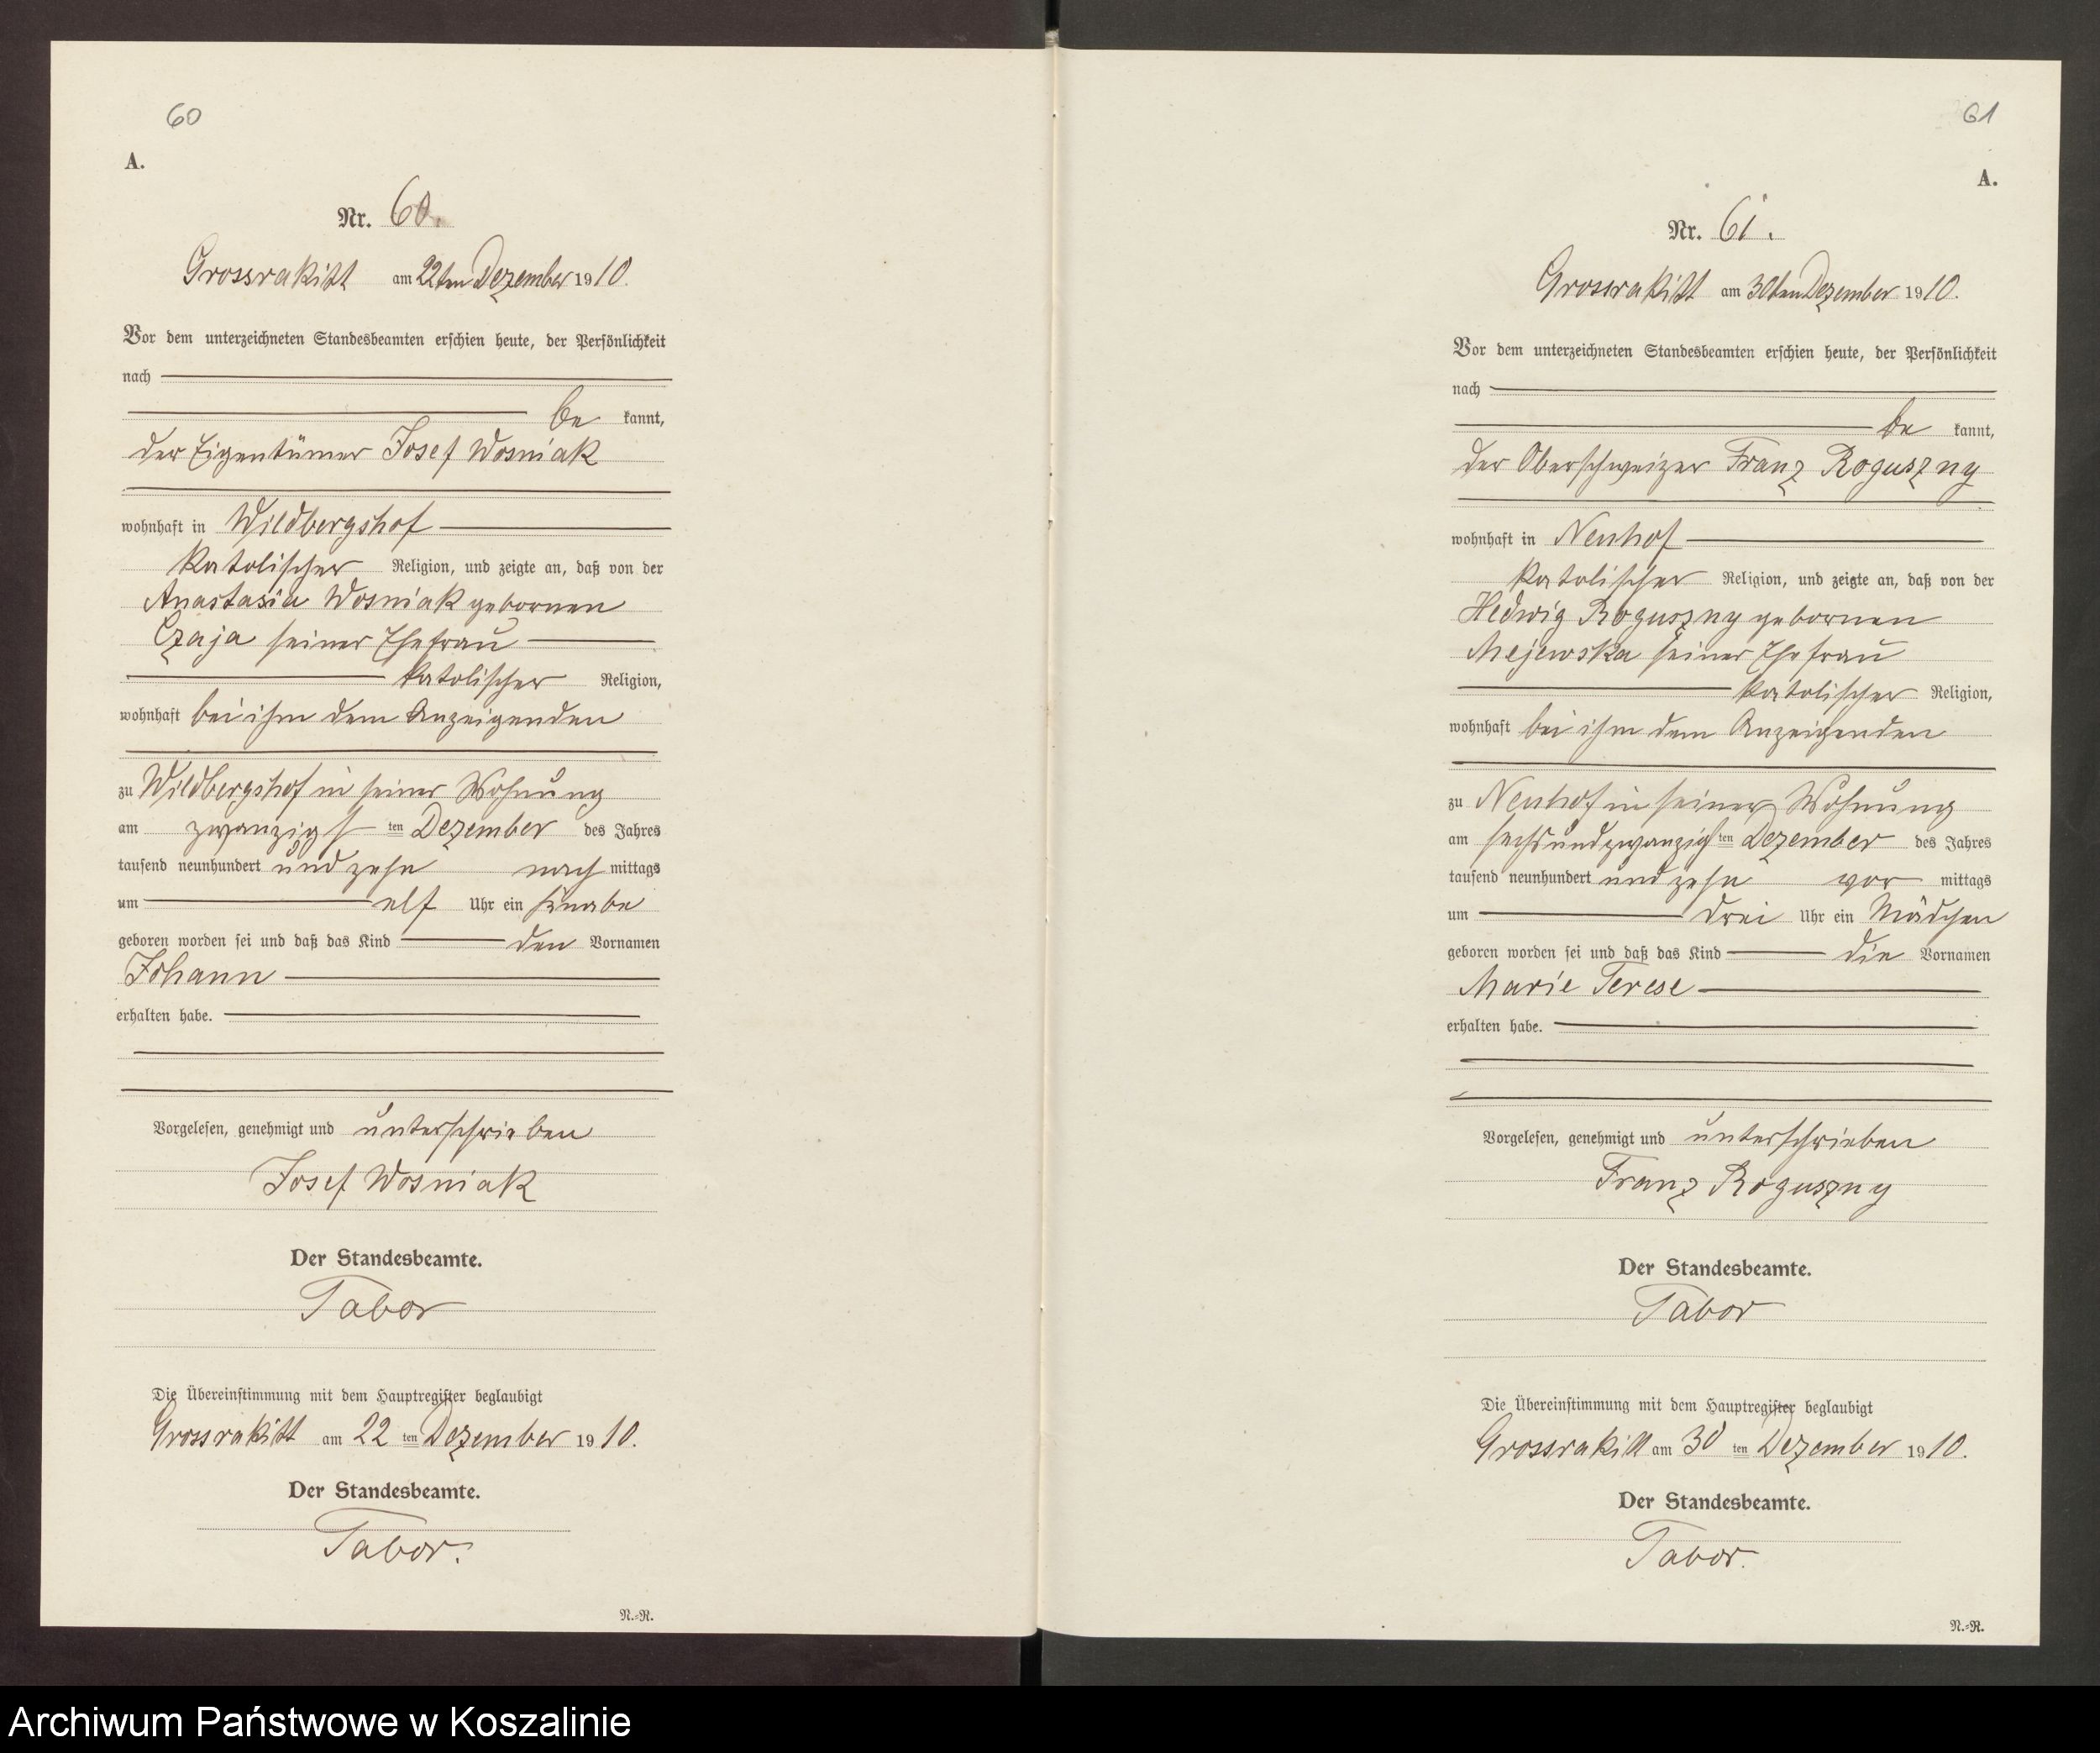 60
A.
Nr. 60.
Grossrakitt am 22ten Dezember 1910.
Vor dem unterzeichneten Standesbeamten erschien heute, der Persönlichkeit
nach
be kannt,
der Eigentümer Josef Wosniak
wohnhaft in Wildbergshof
katolischer Religion, und zeigte an, daß von der
Anastasia Wosniak gebornen
Czaja seiner Ehefrau
katolischer Religion,
wohnhaft bei ihm dem Anzeigenden
zu Wildbergshof in seiner Wohnung
am zwanzigsten Dezember des Jahres
tausend neunhundert und zehn nach mittags
um elf Uhr ein Knabe
geboren worden sei und daß das Kind den Vornamen
Johann
erhalten habe.
Vorgelesen, genehmigt und unterschrieben
Josef Wosniak
Der Standesbeamte.
Tabor
Die Übereinstimmung mit dem Hauptregister beglaubigt
Grossrakitt am 22 ten Dezember 1910.
Der Standesbeamte.
Tabor.
N.-R.
61
A.
Nr. 61.
Grossrakitt am 30ten Dezember 1910.
Vor dem unterzeichneten Standesbeamten erschien heute, der Persönlichkeit
nach
be kannt,
der Oberschweizer Franz Roguszny
wohnhaft in Neuhof
katolischer Religion, und zeigte an, daß von der
Hedwig Roguszny gebornen
Mejewska seiner Ehefrau
katolischer Religion,
wohnhaft bei ihm dem Anzeigenden
zu Neuhof in seiner Wohnung
am sechsundzwanzigsten Dezember des Jahres
tausend neunhundert und zehn vor mittags
um drei Uhr ein Mädchen
geboren worden sei und daß das Kind die Vornamen
Marie Terese
erhalten habe.
Vorgelesen, genehmigt und unterschrieben
Franz Roguszny
Der Standesbeamte.
Tabor
Die Übereinstimmung mit dem Hauptregister beglaubigt
Grossrakitt am 30 ten Dezember 1910.
Der Standesbeamte.
Tabor.
N.-R.
Archiwum Państwowe w Koszalinie